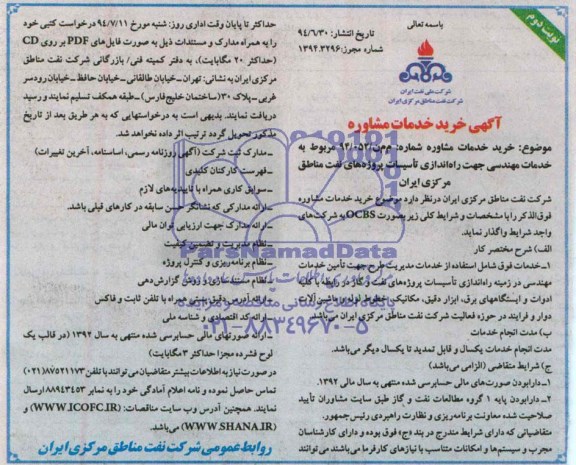 نوبت دوم
باسمه تعالی
تاریخ انتشار: ۹۴/۶/۳۰
شماره مجوز: ۱۳۹۴.۳۲۹۶
شرکت ملی نفت ایران
شرکت نفت مناطق مرکزی ایران
آگهی خرید خدمات مشاوره
موضوع: خرید خدمات مشاوره شماره: م‌م‌ن/۰۵۲-۹۴ مربوط به
خدمات مهندسی جهت راه‌اندازی تأسیسات پروژه‌های نفت مناطق
مرکزی ایران
شرکت نفت مناطق مرکزی ایران در نظر دارد موضوع خرید خدمات مشاوره
فوق‌الذکر را با مشخصات و شرایط کلی زیر بصورت OCBS به شرکت‌های
واجد شرایط واگذار نماید.
الف) شرح مختصر کار
۱-خدمات فوق شامل استفاده از خدمات مدیریت طرح جهت تأمین خدمات
مهندسی در زمینه راه‌اندازی تأسیسات پروژه‌های نفت و گاز در رابطه با کلیه
ادوات و ایستگاههای برق، ابزار دقیق، مکانیک، خطوط لوله و ماشین آلات
دوار و فرایند در حوزه فعالیت شرکت نفت مناطق مرکزی ایران می‌باشد.
ب) مدت انجام خدمات
مدت انجام خدمات یکسال و قابل تمدید تا یکسال دیگر می‌باشد.
ج) شرایط متقاضی (الزامی می‌باشد)
۱-دارا بودن صورت‌های مالی حسابرسی شده منتهی به سال مالی ۱۳۹۲.
۲-دارا بودن پایه ۱ گروه مطالعات نفت و گاز طبق سایت مشاوران تأیید
صلاحیت شده معاونت برنامه‌ریزی و نظارت راهبردی رئیس‌جمهور.
متقاضیانی که دارای شرایط مندرج در بند (ج) فوق بوده و دارای کارشناسان
مجرب و سیستم‌ها و امکانات متناسب با نیازهای کارفرما می‌باشند می‌توانند
حداکثر تا پایان وقت اداری روز: شنبه مورخ ۹۴/۷/۱۱ درخواست کتبی خود
را به همراه مدارک و مستندات ذیل به صورت فایل‌های PDF بر روی CD
(حداکثر ۲۰ مگابایت)، به دفتر کمیته فنی/ بازرگانی شرکت نفت مناطق
مرکزی ایران به نشانی: تهران-خیابان طالقانی-خیابان حافظ-خیابان رودسر
غربی-پلاک ۳۰ (ساختمان خلیج فارس)-طبقه همکف تسلیم نمایند و رسید
دریافت نمایند. بدیهی است به درخواستهایی که به هر طریق بعد از تاریخ
مذکور تحویل گردد ترتیب اثر داده نخواهد شد.
-مدارک ثبت شرکت (آگهی روزنامه رسمی، اساسنامه، آخرین تغییرات)
-فهرست کارکنان کلیدی
-سوابق کاری همراه با تاییدیه‌های لازم
-ارائه مدارکی که نشانگر حسن سابقه در کارهای قبلی باشد.
-ارائه مدارک جهت ارزیابی توان مالی
-نظام مدیریت و تضمین کیفیت
-نظام برنامه‌ریزی و کنترل پروژه
-نظام مستندسازی و روش گزارش‌دهی
-ارائه آدرس دقیق پستی همراه با تلفن ثابت و فاکس
-ارائه کد اقتصادی و شناسه ملی
-ارائه صورتهای مالی حسابرسی شده منتهی به سال ۱۳۹۲ (در قالب یک
لوح فشرده مجزا حداکثر ۳ مگابایت)
در صورت نیاز به اطلاعات بیشتر متقاضیان می‌توانند با تلفن ۸۷۵۲۱۱۷۳(۰۲۱)
تماس حاصل نموده و نامه اعلام آمادگی خود را به نمابر ۸۸۹۴۳۴۵۳ ارسال
نمایند. همچنین آدرس وب سایت مناقصات: (WWW.ICOFC.IR) و
(WWW.SHANA.IR) می‌باشد.
روابط عمومی شرکت نفت مناطق مرکزی ایران
ParsNamadData
پایگاه اطلاع رسانی مناقصات و مزایدات
۰۲۱-۸۸۳۴۹۶۷۰-۵